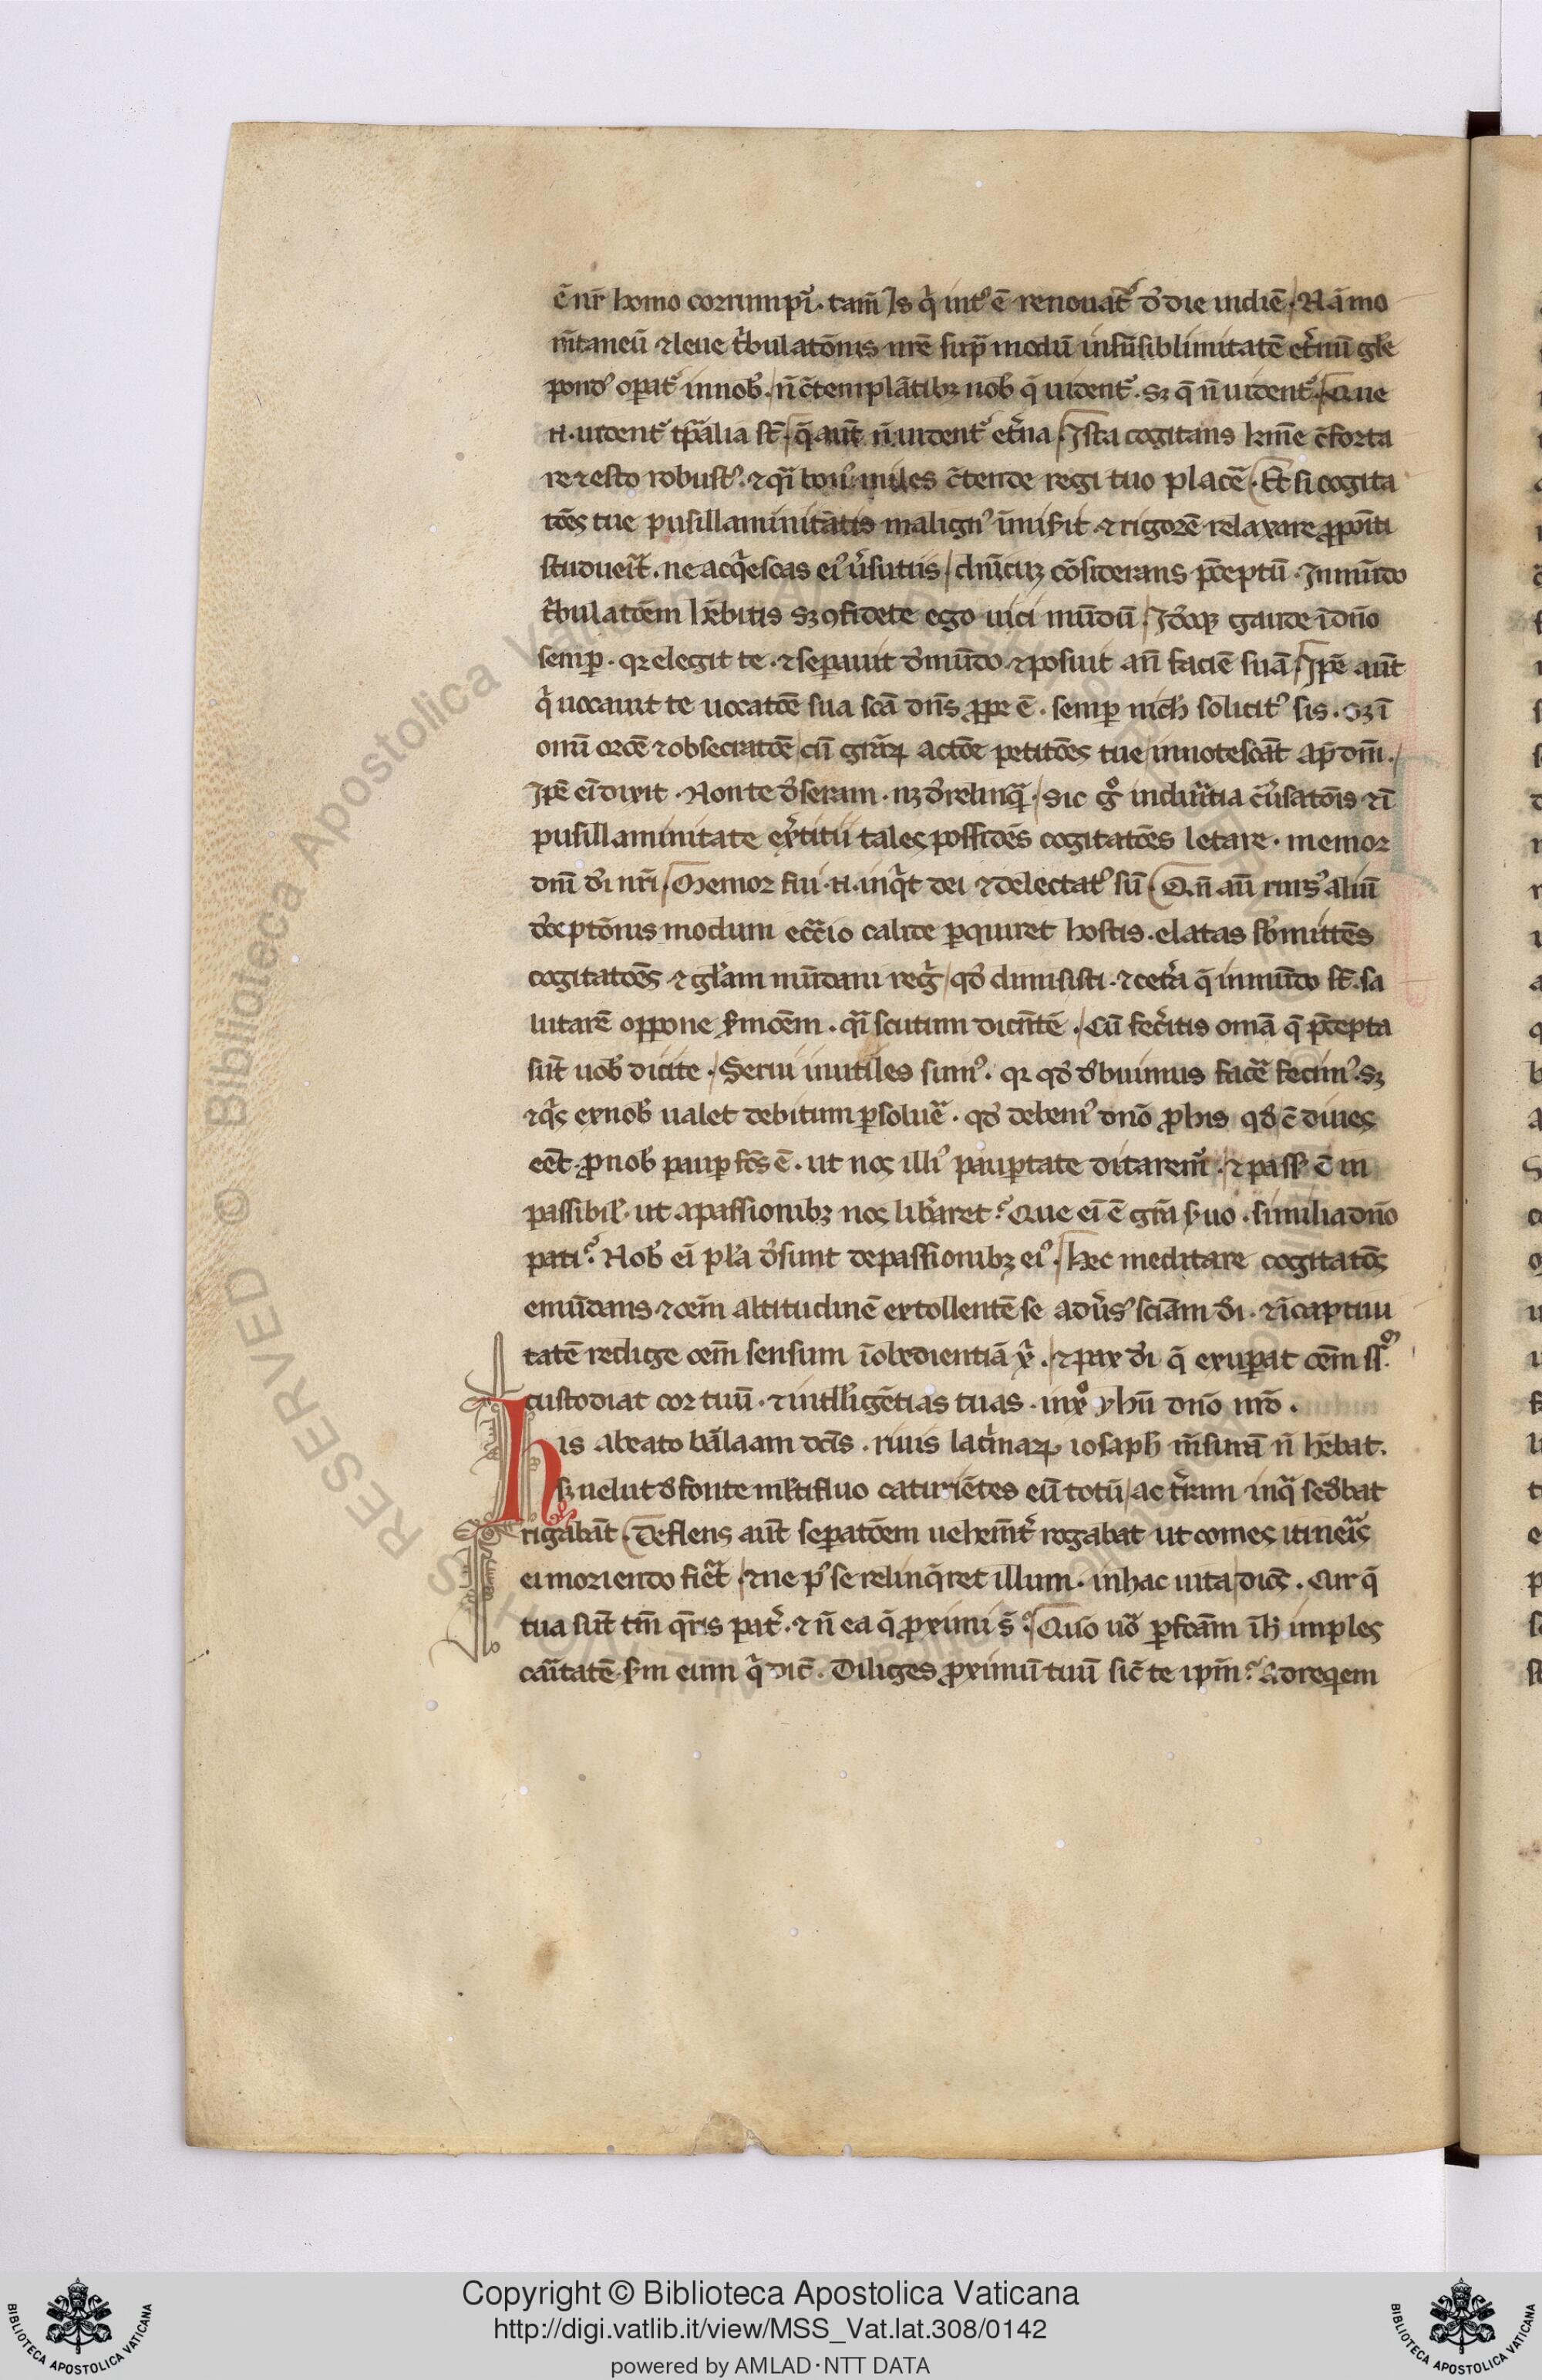 ē nr̄ homo corrumpit᷑. tam̄ is qͥ intꝰ ē renouat᷑ đ die indiē. Nā mo
m̄taneū ⁊ leue tͥbulatōnis nrē supᷓ modū insūsiblimitatē et̓nū gl̄e
pondꝰ opat᷑ innob̄. n̄ c̄templātibꝫ nob̄ q̄ uident᷑. sꝫ q̄ n̄ uident᷑. Que
.n. uident᷑ tp̄alia st̄. q̄ aut̄ n̄ uident᷑ et̓na. Ista cogitans kme c̄forta
re ⁊ esto robustꝰ. ⁊ qᷓi bonꝰ miles c̄tende regi tuo placē. Et si cogita
tōes tue pusillaminitatis malignꝰ īmiserit ⁊ rigorē relaxare ꝓpōiti
studueit᷑. ne acqͥescas eiꝰ ūsutiis dn̄icuꝫ cōsiderans p̄ceptū. Inmūdo
tͥbulatōem hēbitis sꝫ ꝯfidete ego uici mūdū. Id̓oqꝫ gaude ī dn̄o
semꝑ. qꝛ elegit te. ⁊ sepauit đ mūdo ⁊ posuit an̄ faciē suā. Ipē aut̄
qͥ uocauit te uocatōe sua scā dn̄s ꝓpe ē. semꝑ nich̄ solicitꝰ sis. Sꝫ ī
om̄i or̄oe ⁊ obsecratōe cū gr̄aꝝ actōe petitōes tue innotescāt ap̄ dm̄.
Ipē ei dixit. Non te đseram. nꝫ đrelinqᷓ. sic gͦ in duritia c̄ūsatōis ⁊ ī
pusillaminitate ex̄titū tales possidēs cogitatōes letare. memor
dn̄i đi nr̄i. Memor fui .n. inqͥt dei ⁊ delectatꝰ sū. Qn̄ aū rursꝰ aliū
đceptōnis modum ecc̄io calide ꝑquiret hostis. elatas s̄bmittēs
cogitatōes ⁊ gl̄am mūdani reg̓ qđ dimisisti. ⁊ cet̓a q̄ inmūdo st̄. sa
lutarē oppone s̓moēm. qᷓi scutum dicn̄tē. Cū fec̓itis om̄a q̄ p̄cepta
sūt uob̄ dicite. Serui inutiles sumꝰ. qꝛ qđ đbuimus facē fecimꝰ. sꝫ
⁊ qͥs ex nob̄ ualet debitum ꝑsoluē. qđ debemꝰ dn̄o ꝓ his qđ c̄ diues
eēt. ꝓ nob̄ pauꝑ fcs̄ ē. ut nos illiꝰ pauꝑtate ditaremꝰ. ⁊ pass̄ ē in
passibil̓. ut apassionibꝫ nos lib̓aret. Que ei ē gr̄a s̓uo. similia dn̄o
pati. Nob̄ ei pl̓a đsunt depassionibꝫ eiꝰ. Hec meditare cogitatōs
emūdans ⁊ oēm altitudinē extollentē se adūsꝰ sciam đi. ⁊ ī captiui
tatē redige oēm sensum ī obedientiā xͥ. ⁊ pax đi q̄ exupat oēm ss̄
custodiat cor tuū. ⁊ intll̓igētias tuas. inxͦ yhū dn̄o nr̄o.
His abeato ba̓laam dcīs. riuis lac̓maꝝ iosaph̄ m̄sura n̄ hēbat.
sꝫ uelut đ fonte ml̓tifluo caturiētes eū totū ac t̓ram inqᷓ seđbat
rigabāt. Deflens aut̄ sepatōem uehem̄t᷑ rogabat ut comes itineīs
ei moriendo fiēt. ⁊ ne pꝰ se relinqͥret illum. inhac uita dicēs. Cur q̄
tua sūt tm̄ qr̄is pat᷑. ⁊ n̄ ea q̄ ꝓximi s̄. Quō uō ꝑfcām īh̄ imples
caritatē s̓m eum qͥ dic̄. Diliges ꝓximū tuū sic̄ te ipm̄. Ad reqem
Copyright © Biblioteca Apostolica Vaticana
http://digi.vatlib.it/view/MSS_Vat.lat.308/0142
powered by AMLAD·NTT DATA